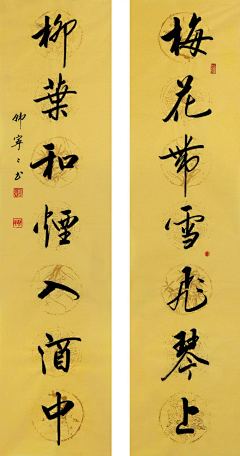 梅花帶雪飛琴上
柳葉和煙入酒中